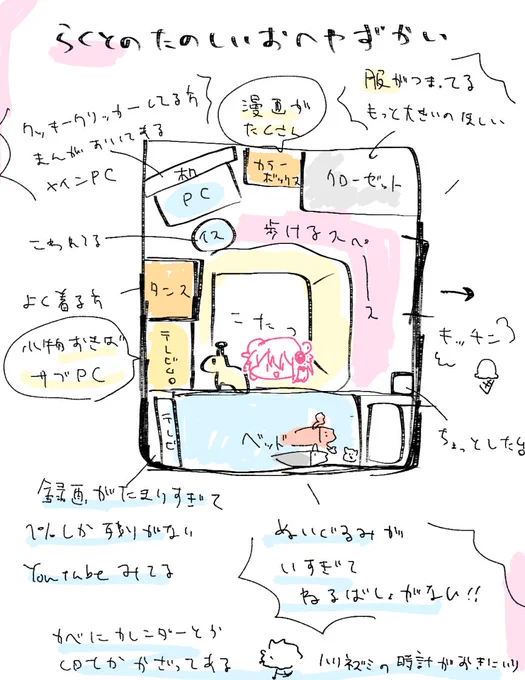 らくとのたのしいおへやずかい
クッキークリッカーしてる方
まんがおいてある
メインPC
漫画が
たくさん
服がつまってる
もっと大きいのほしい
机
PC
カラー
ボックス
クローゼット
イス
歩けるスペース
こわれてる
タンス
よく着る方
小物おきば
サブPC
テレビ
こたつ
キッチン
テレビ
ベッド
ちょっとした台
録画がたまりすぎて
しか残りがない
Youtubeみてる
ぬいぐるみが
いすぎて
ねるばしょがない!!
かべにカレンダーとか
CDとかかざってある
ハリネズミの時計がおきにいり